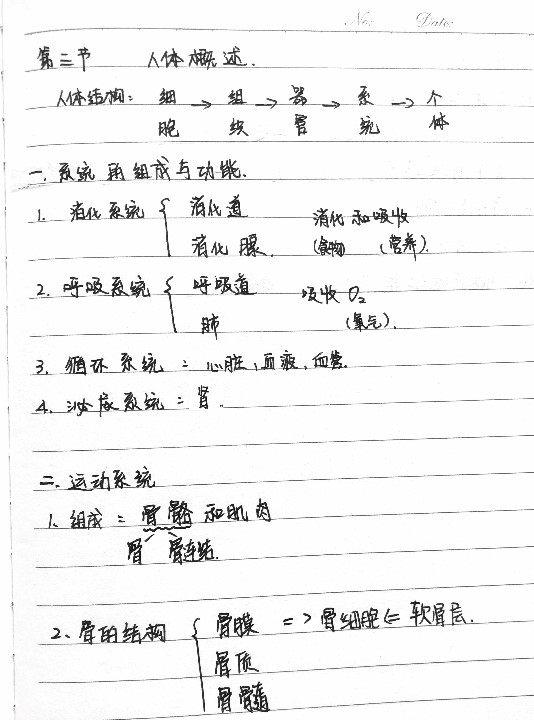 No: Date:
第三节 人体概述.
人体结构: 细胞 → 组织 → 器官 → 系统 → 个体
一. 系统的组成与功能.
1. 消化系统 { 消化道 消化和吸收
消化腺. (食物) (营养).
2. 呼吸系统 { 呼吸道 吸收 O₂
肺 (氧气).
3. 循环系统: 心脏, 血液, 血管.
4. 泌尿系统: 肾.
二. 运动系统
1. 组成: 骨骼和肌肉
骨 骨连结.
2、骨的结构 { 骨膜 => 骨细胞 <= 软骨层.
骨质
骨髓